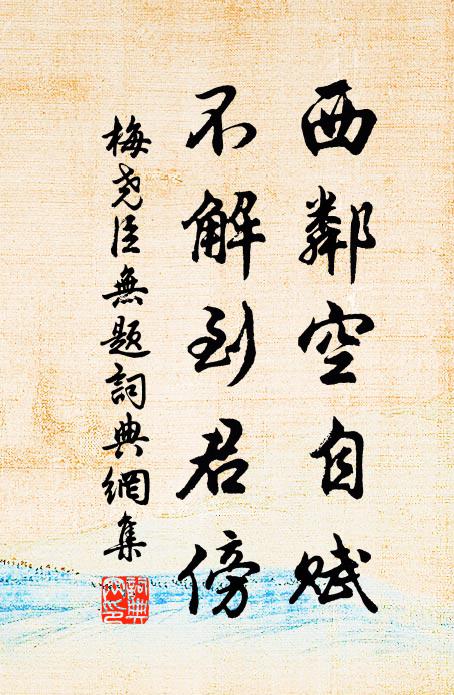 西鄰空自賦
不解到君傍
梅尧臣無题詞典網集